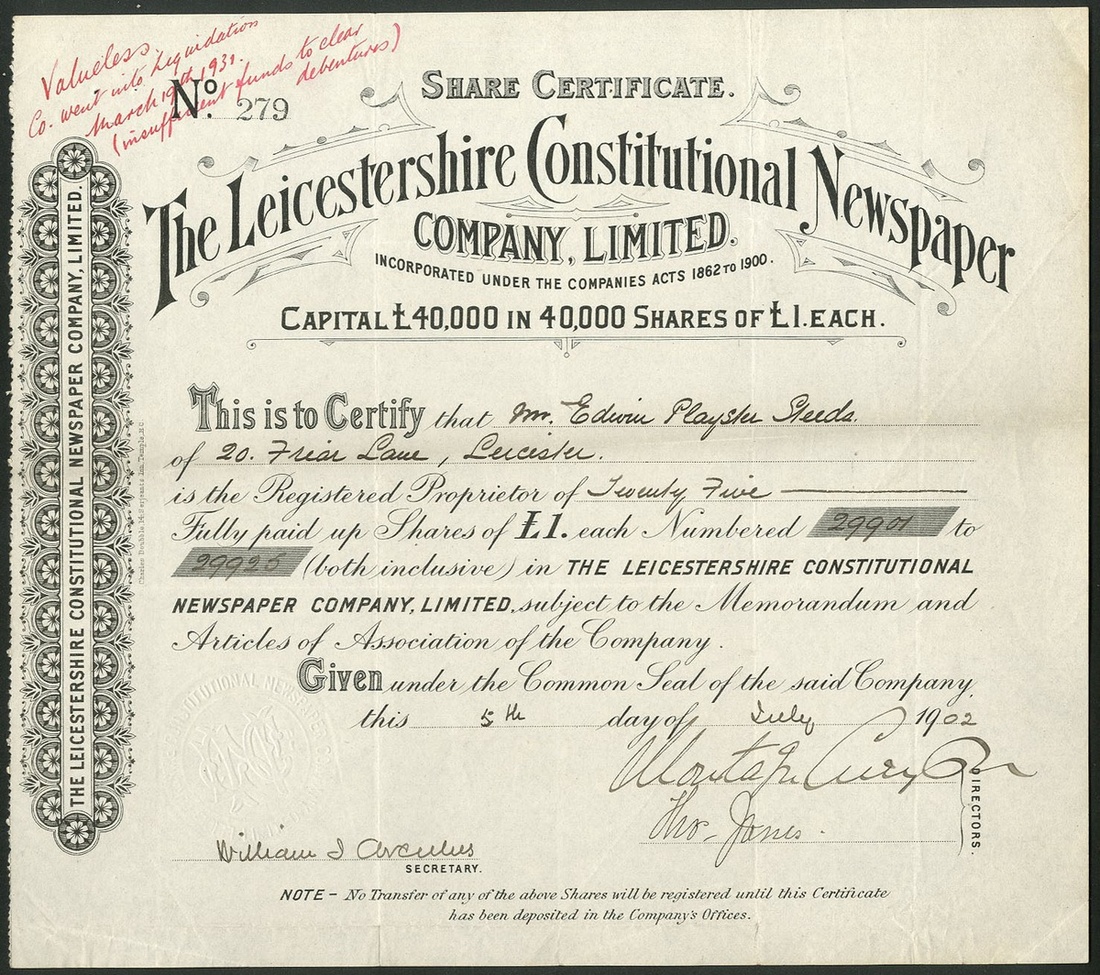 Valueless.
Co. went into Liquidation
March 19th 1931.
(insufficient funds to clear
debentures)
No. 279
SHARE CERTIFICATE.
The Leicestershire Constitutional Newspaper
COMPANY, LIMITED.
INCORPORATED UNDER THE COMPANIES ACTS 1862 TO 1900.
CAPITAL £40,000 IN 40,000 SHARES OF £1. EACH.
THE LEICESTERSHIRE CONSTITUTIONAL NEWSPAPER COMPANY, LIMITED.
This is to Certify that Mr. Edwin Playster Steeds.
of 20. Friar Lane, Leicester.
is the Registered Proprietor of Twenty Five
Fully paid up Shares of £1. each Numbered 29901 to
29925 (both inclusive) in THE LEICESTERSHIRE CONSTITUTIONAL
NEWSPAPER COMPANY, LIMITED, subject to the Memorandum and
Articles of Association of the Company.
Given under the Common Seal of the said Company,
this 5th day of July 1902
Thos. Jones.
DIRECTORS.
William J Arculus
SECRETARY.
NOTE – No Transfer of any of the above Shares will be registered until this Certificate
has been deposited in the Company's Offices.